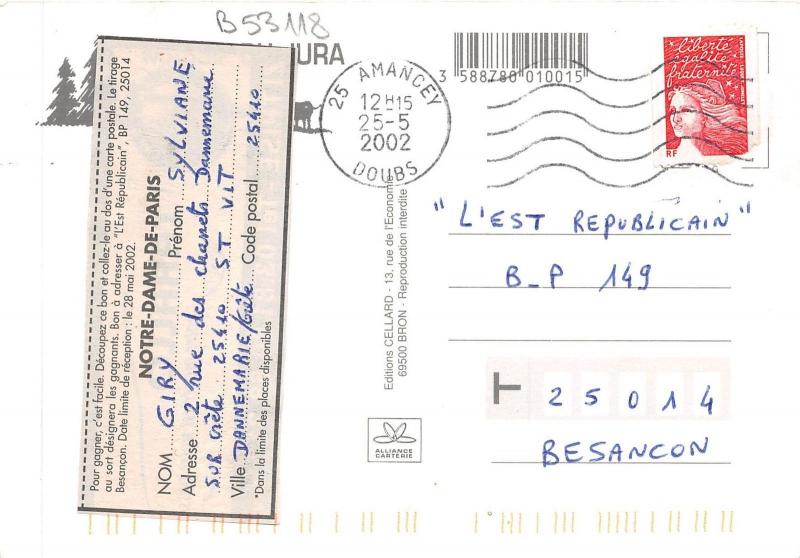 B53118
JURA
Pour gagner, c'est facile. Découpez ce bon et collez-le au dos d'une carte postale. Le tirage
au sort désignera les gagnants. Bon à adresser à "L'Est Républicain", BP 149, 25014
Besançon. Date limite de réception : le 28 mai 2002.
NOTRE-DAME-DE-PARIS
NOM GIRY Prénom SYLVIANE
Adresse 2 rue des chanets Dannemarie
SUR Crète 25410 ST VIT
Ville DANNEMARIE/Crête Code postal 25410
*Dans la limite des places disponibles
25 AMANCEY
12H15
25-5
2002
DOUBS
3 588780 010015
liberté
égalité
fraternité
RF
Editions CELLARD - 13, rue de l'Economie
69500 BRON - Reproduction interdite
ALLIANCE
CARTERIE
"L'EST REPUBLICAIN"
B_P 149
25014
BESANCON